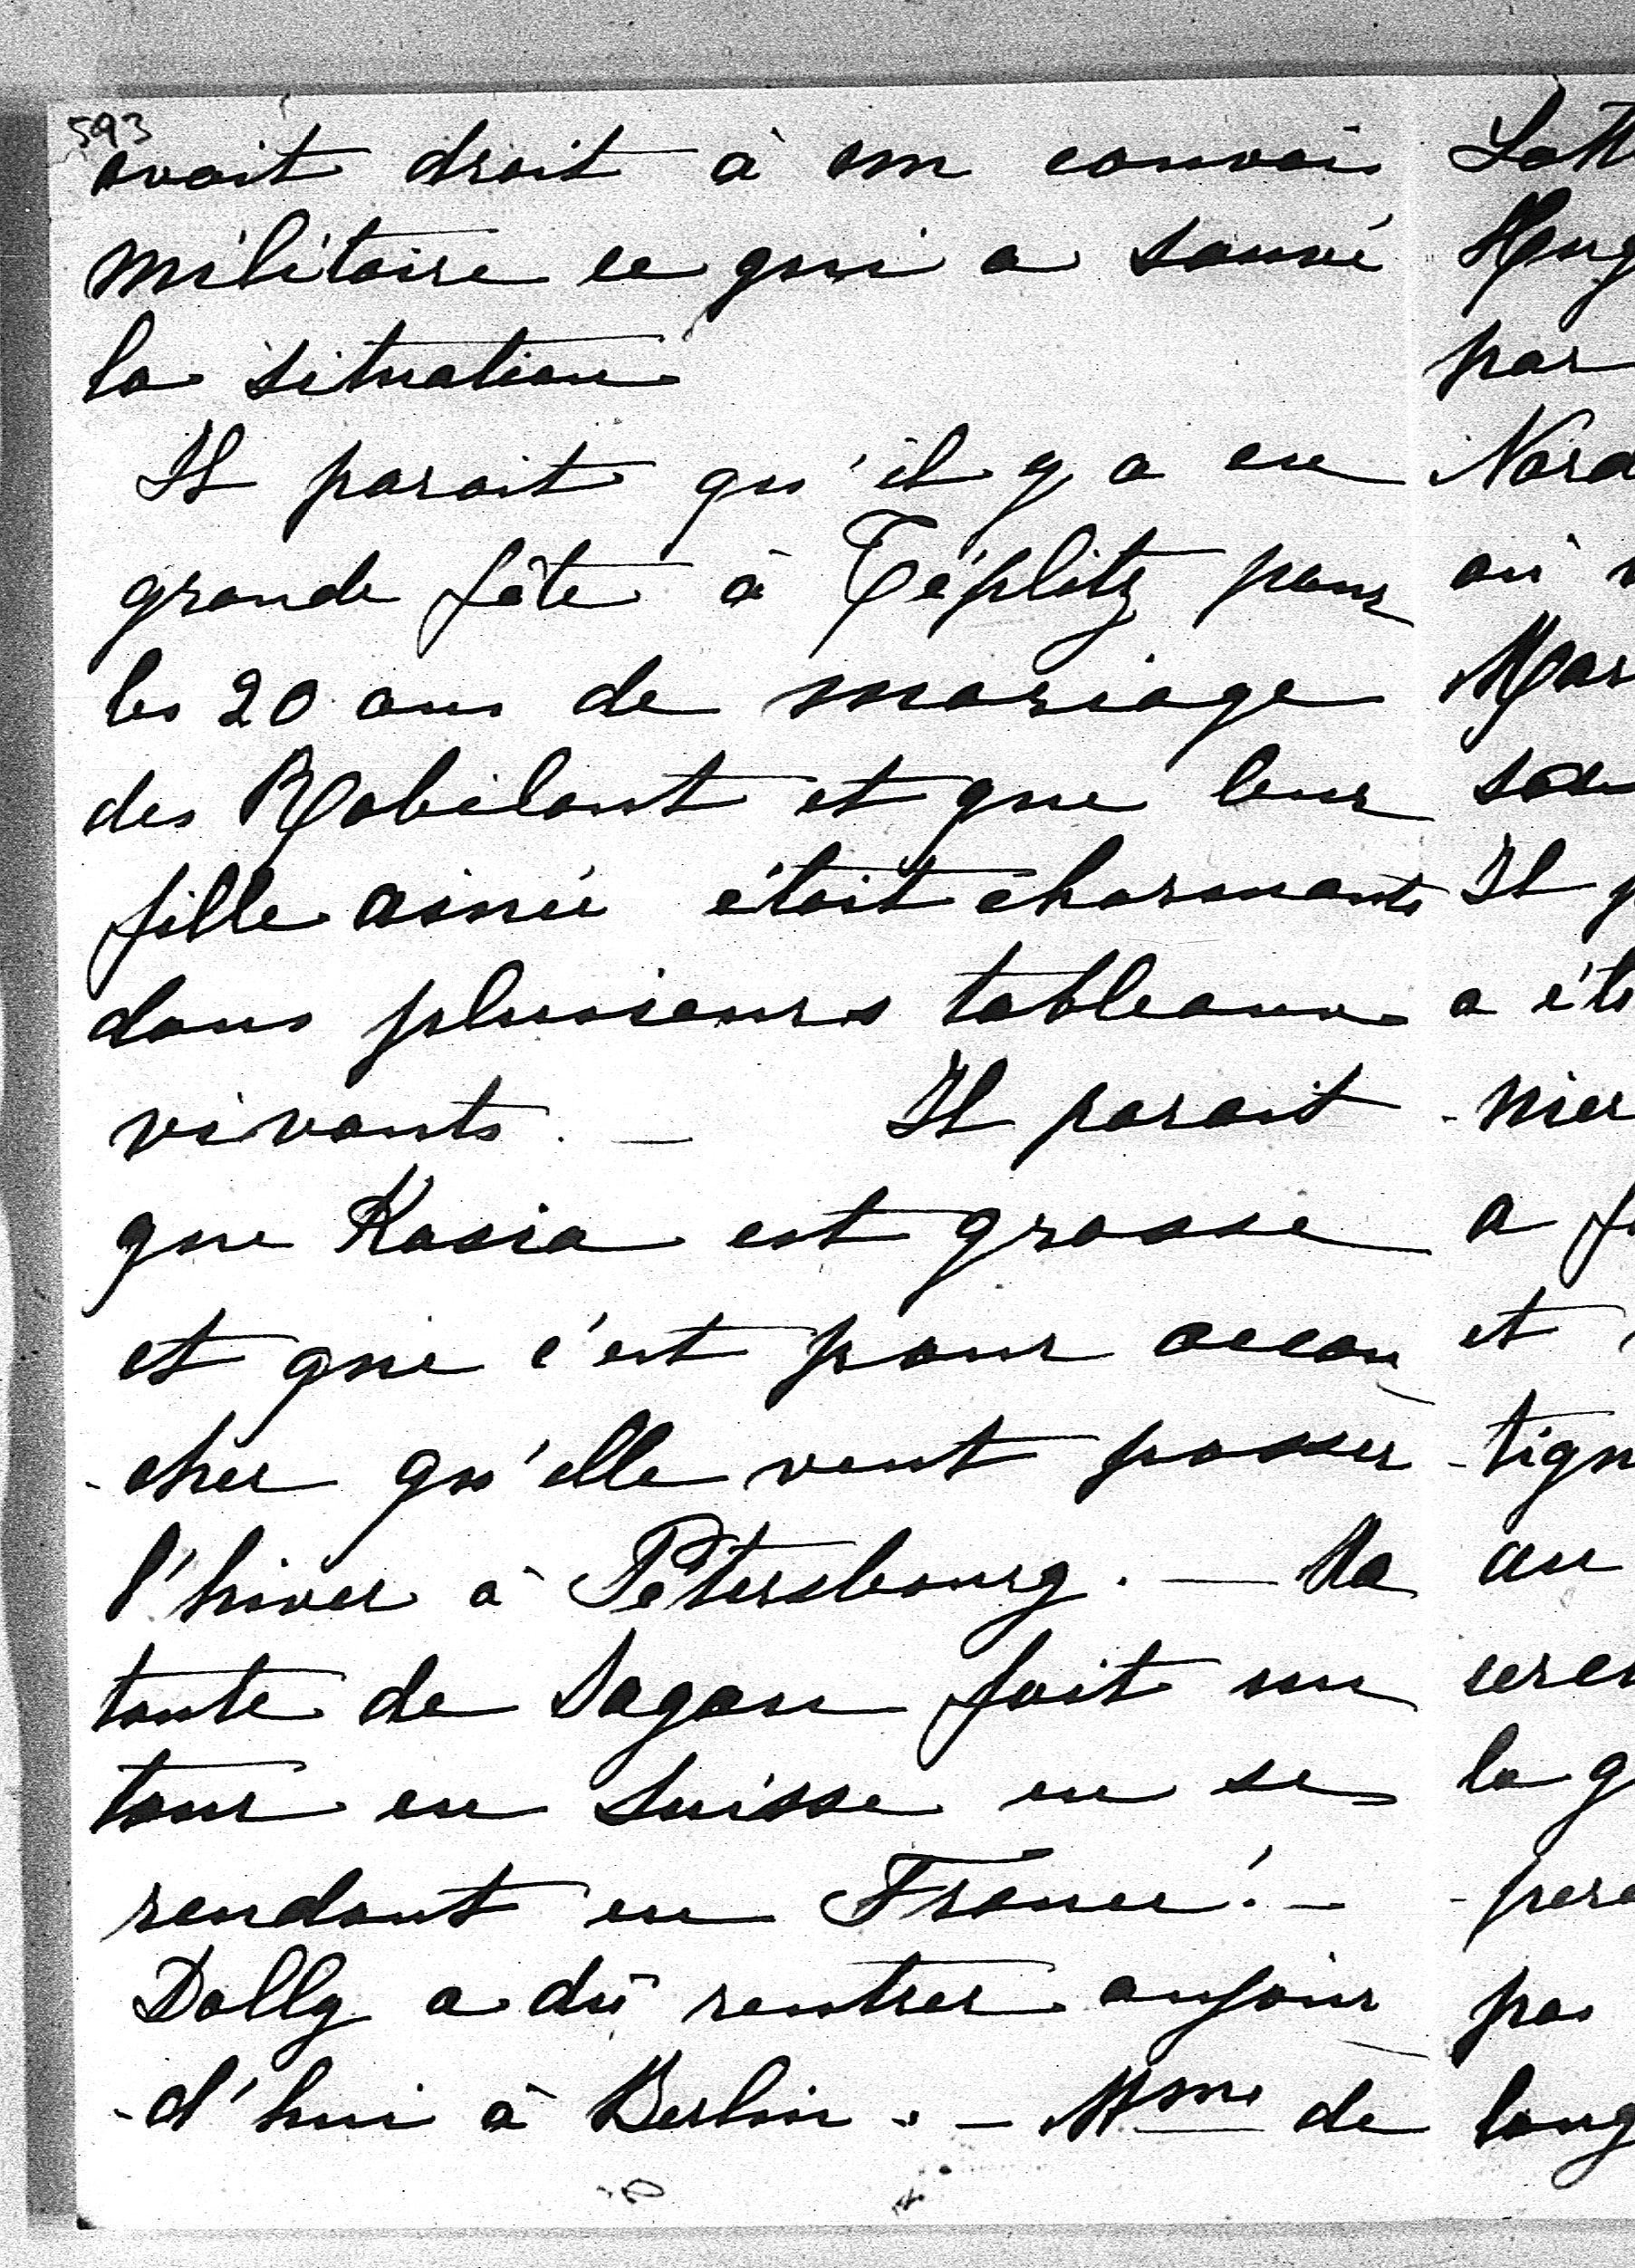 593
avait droit à un convoi
militaire ce qui a sauvé
la situation
Il parait qu'il y a eu
grande fête à Téplitz pour
les 20 ans de mariage
des Robilant et que leur
fille ainée était charmante
dans plusieurs tableaux
vivants. — Il parait
que Kasia est grosse
et que c'est pour accou
-cher qu'elle veut passer
l'hiver à Pétersbourg. — Ma
tante de Sagan fait un
tour en Suisse en se
rendant en France. —
Dolly a dû rentrer aujour
-d'hui à Berlin. — Mme de
par
Nord
où
Il
a été
a
et
au
la
pas
long